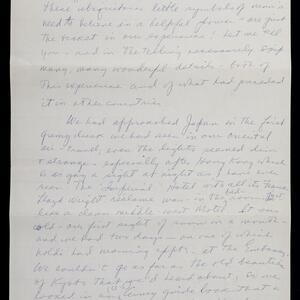 These ubiquitous little symbols of man's
need to believe in a helpful power - are just
the in our experience! Let me tell
you - and in the telling necessarily skip
many, many wonderful details - both of
this experience and of what had preceded
it in other countries.
We had approached Japan in the first
gray dusk we had seen in our oriental
air-travel, even the lights seemed dim
& strange - especially after Hong Kong which
is as gay a sight at night as I have ever
seen. The Imperial Hotel with all its
Lloyd Wright was - in the
like a clean middle-west motel. It was
cold - our first night of in a month -
and we had two days on one of which
had morning appts. at the Embassy.
We couldn't go as far as the old beauties
of Kyoto that we'd about, so we
looked in any guide book that a